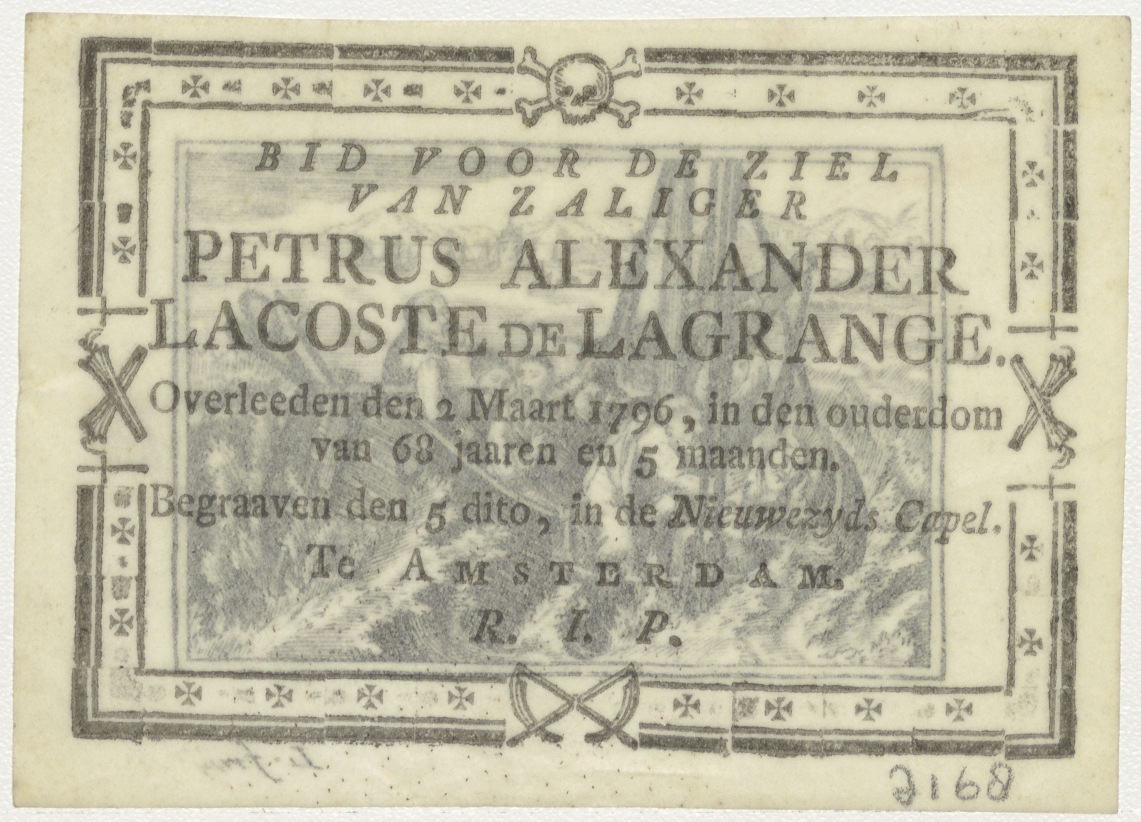 BID VOOR DE ZIEL
VAN ZALIGER
PETRUS ALEXANDER
LACOSTE DE LAGRANGE.
Overleeden den 2 Maart 1796, in den ouderdom
van 68 jaaren en 5 maanden.
Begraaven den 5 dito, in de Nieuwezyds Capel.
Te AMSTERDAM.
R. I. P.